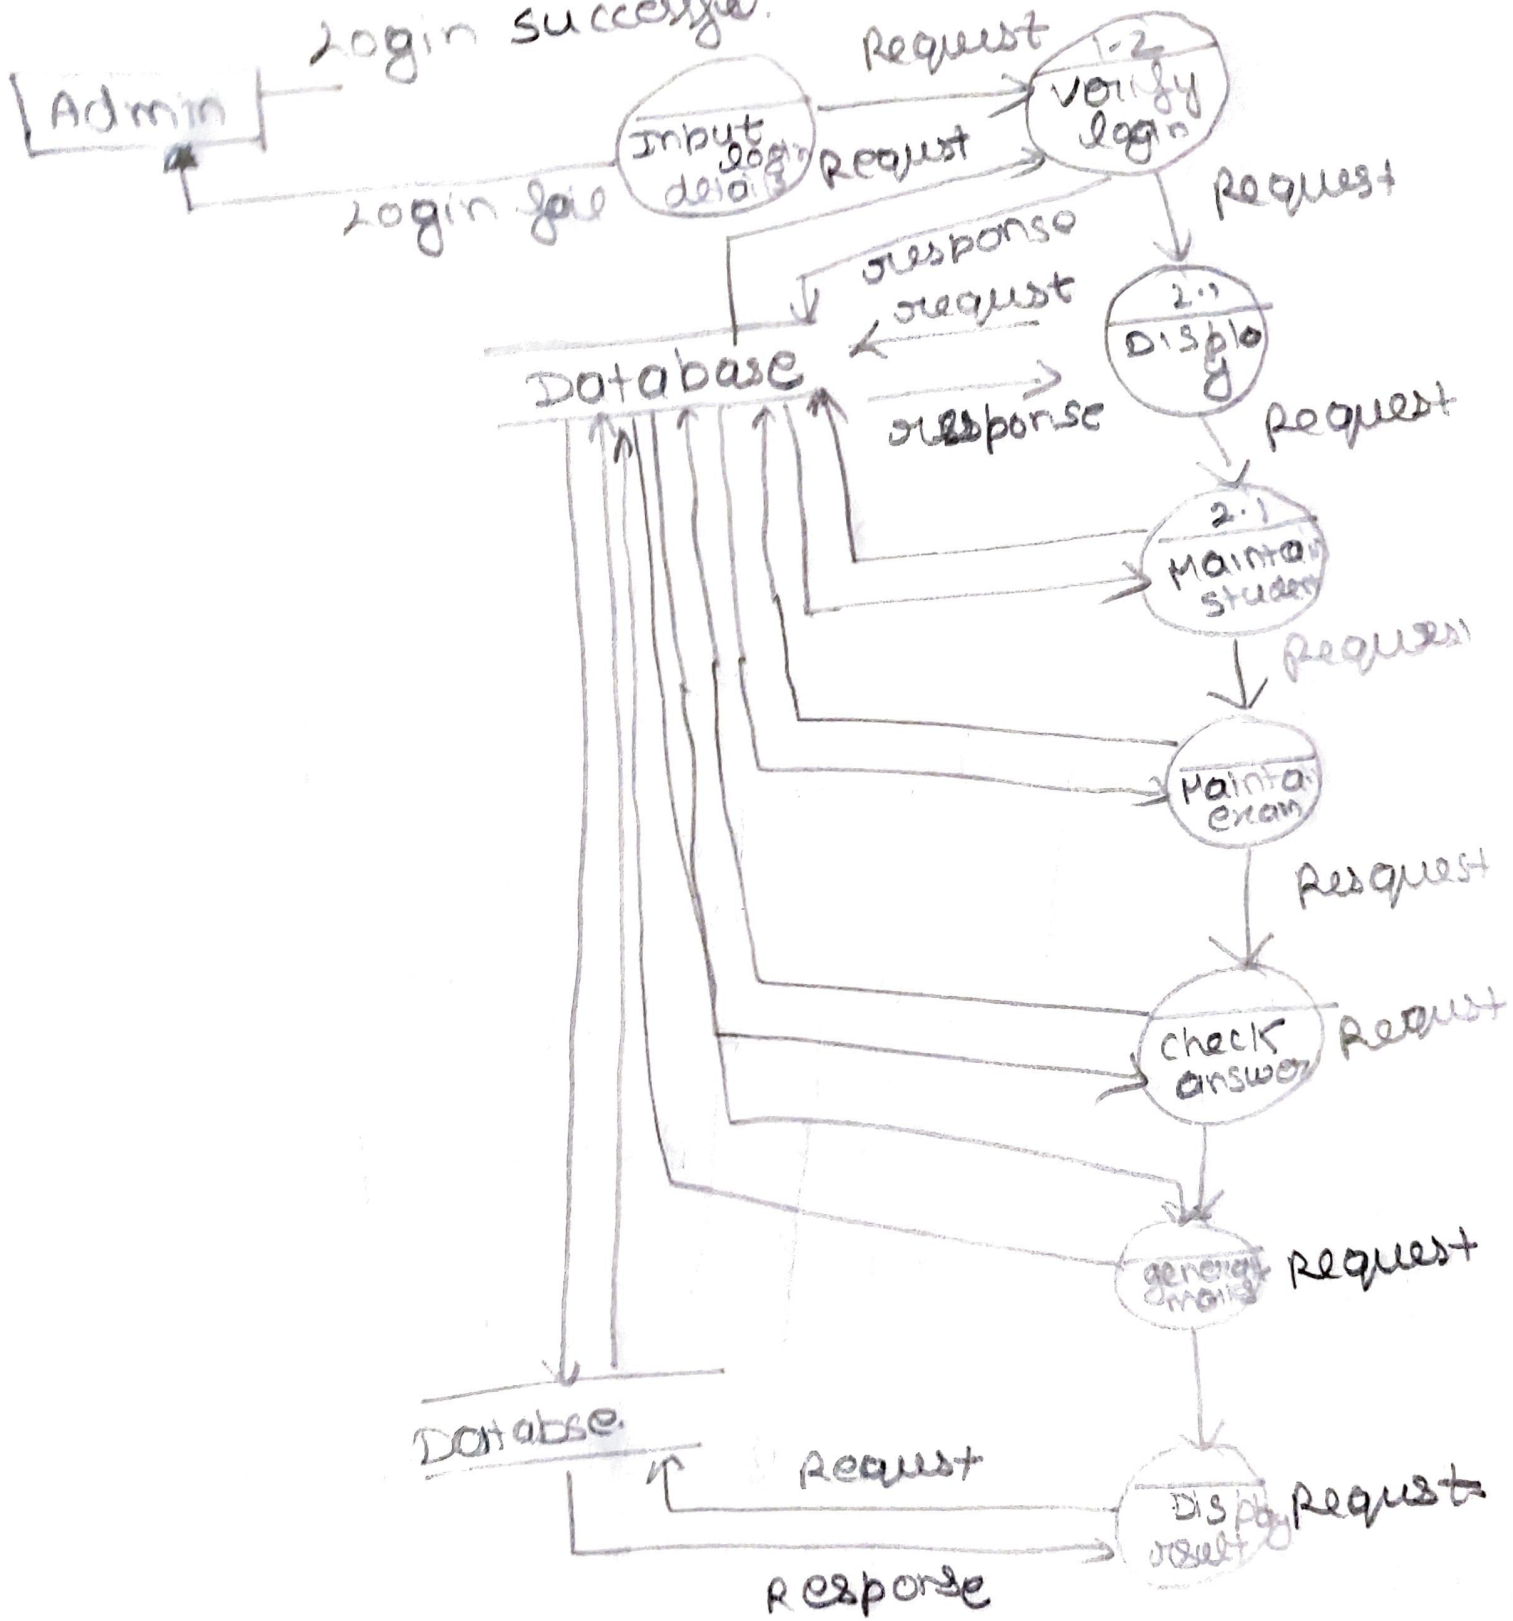 Login successfu.
Request
1.2
Verify
login
Admin
Input
login
details
Request
Login fail
Request
response
request
2.1
Display
Database
response
Request
2.1
Maintain
student
Request
Maintai
exam
Resquest
check
answer
Request
generat
Request
Databse
Request
Display
result
Request
Response